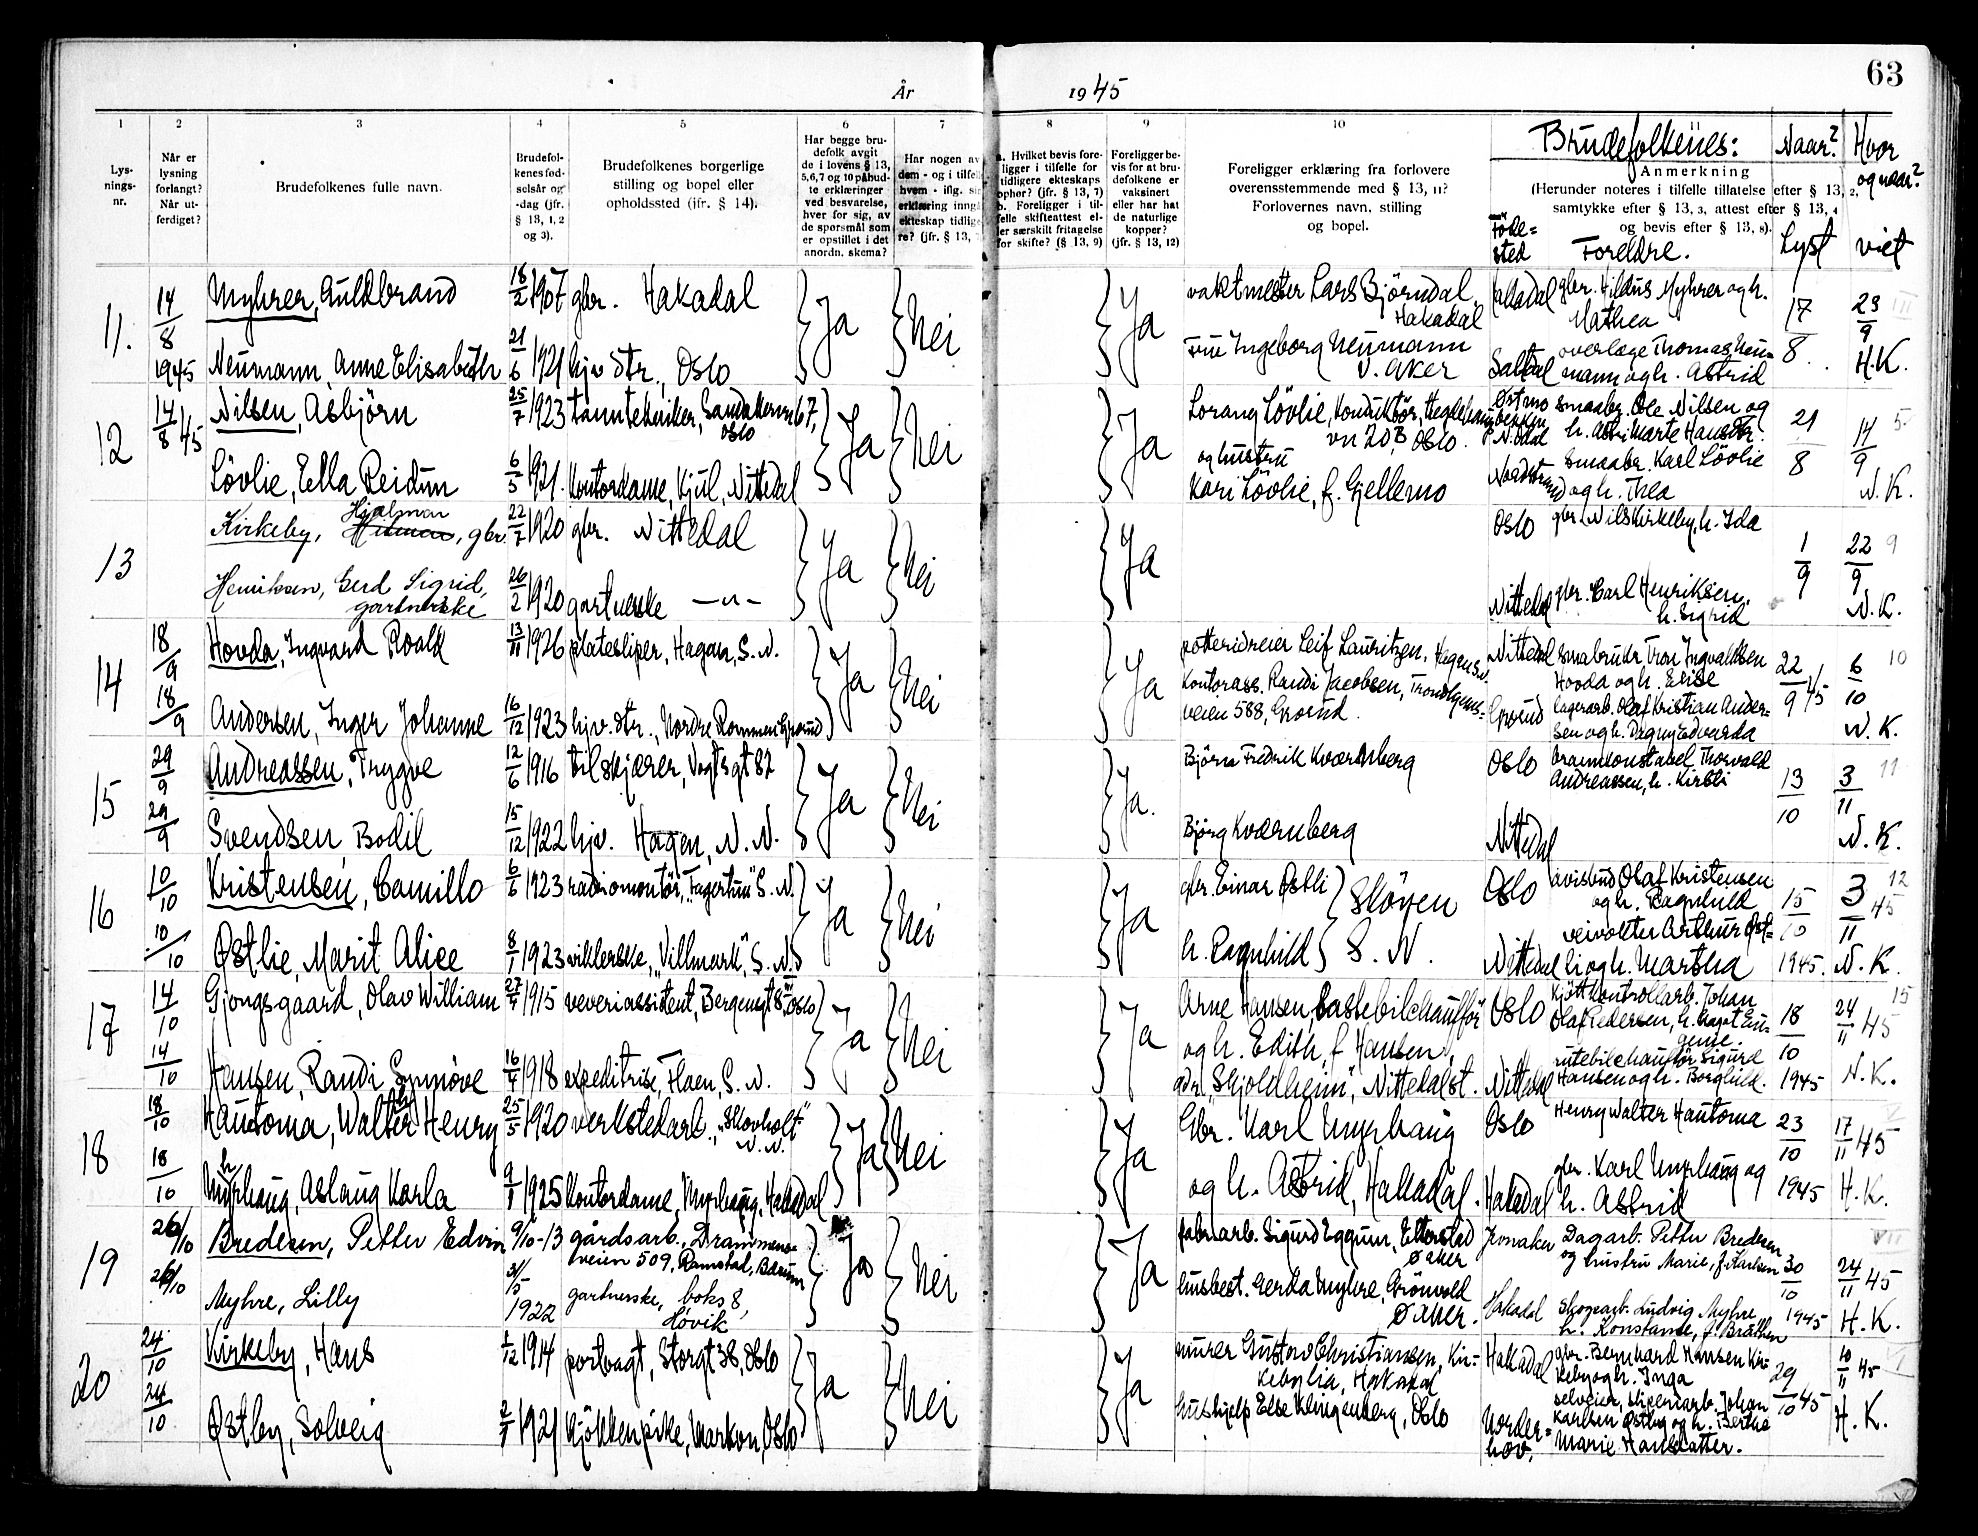 63
År 1945
1 2 3 4 5 6 7 8 9 10 11
Lys-
nings-
nr.
Når er
lysning
forlangt?
Når ut-
ferdiget?
Brudefolkenes fulle navn.
Brudefol-
kenes fød-
selsår og
-dag (jfr.
§ 13, 1, 2
og 3).
Brudefolkenes borgerlige
stilling og bopel eller
opholdssted (jfr. § 14).
Har begge bru-
defolk avgit
de i lovens § 13,
5,6,7 og 10 påbud-
te erklæringer
ved besvarelse,
hver for sig, av
de spørsmål som
er opstillet i det
anordn. skema?
Har nogen av
dem - og i tilfelle
hvem - iflg. sin
erklæring inngå
ekteskap tidlige
re? (jfr. § 13,
a. Hvilket bevis fore-
ligger i tilfelle for
tidligere ekteskaps
ophør? (jfr. § 13, 7)
b. Foreligger i til-
felle skifteattest el-
ler særskilt fritagelse
for skifte? (§ 13, 9)
Foreligger be-
vis for at bru-
defolkene er
vaksinert
eller har hat
de naturlige
kopper?
(jfr. § 13, 12)
Foreligger erklæring fra forlovere
overensstemmende med § 13, 11?
Forlovernes navn, stilling
og bopel.
Brudefolkenes:
Anmerkning
(Herunder noteres i tilfelle tillatelse efter § 13, 2,
samtykke efter § 13, 3, attest efter § 13, 4
og bevis efter § 13, 8).
Føde-
sted
Foreldre.
Naar?
Lyst
Hvor
og naar?
viet
11. 14/8 1945
Myhrer, Guldbrand 18/2 1907 gbr. Hakadal
Neumann, Anne Elisabeth 21/6 1921 hjv. dtr., Oslo
Ja Nei Ja
vaktmester Lars Bjørndal,
Hakadal
Frue Ingeborg Neumann
V. Aker
Hakadal gbr. Hildus Myhrer og h.
Mathea
Saltdal overlæge Thomas Neu-
mann og h. Astrid
17/8. 23/9 H.K. III
12 14/8 45
Nilsen, Asbjörn 25/7 1923 tanntekniker, Sandakervn 67,
Oslo
Lövlie, Ella Reidun 6/5 1921. Kontordame, Kjul, Nittedal
Ja Nei Ja
Lorang Lövlie, Konduktör, Hegdehaug
vn 20B, Oslo.
og hustru
Kari Lövlie, f. Gjellemo
smaabr. Ole Nilsen og
Nordstrand smaabr. Karl Lövlie
og h. Thea
21/8 14/9 N.K. 5
13
Kirkeby, Hjalmar, gbr. 22/7 1920 gbr. Nittedal
Henriksen, Gerd Sigrid,
gartnerske 26/2 1920 gartnerske —"—
Ja Nei Ja
Oslo gbr. Nils Kirkeby, h. Ida
Nittedal gbr. Carl Henriksen,
h. Sigrid
1/9 22/9 N.K. 9
14 18/9 18/9
Hovda, Ingvard Roald 13/11 1926 platesliper, Hagan, S.N.
Andersen, Inger Johanne 16/12 1923 hjv. dtr., Nordre Rommen Grorud
Ja Nei Ja
potterideier Leif Lauritzen, Hagen S.N.
Kontorass. Randi Jacobsen, Trondhjems-
veien 588, Grorud.
Nittedal smabruker Tron Ingvaldsen
Hovda og h. Elise
Grorud lagerarb. Olaf Kristian Ander-
sen og h. Dagny Edvarda
22/9 45 6/10 N.K. 10
15 29/9 29/9
Andreassen, Trygve 12/6 1916 tilskjærer, Vogts gt 82
Svendsen, Bodil 15/12 1922 hjv. Hagen, N.N.
Ja Nei Ja.
Björn Fredrik Kværnberg
Björg Kværnberg
Oslo brannkonstabel Thorvald
Andreassen, h. Kirsti
Nittedal
13/10 3/11 N.K. 11
16 10/10 10/10
Kristensen, Camillo 6/6 1923 radiomontör, "Fagertun" S.N.
Østlie, Marit Alice 8/1 1923 viklerske, "Villmark", S.N.
Ja Nei Ja
gbr. Einar Østli
h. Ragnhild
Slöyen
S.N.
Oslo avisbud Olaf Kristensen
og h. Ragnhild
Nittedal veivokter Arthur Øst-
li og h. Martha
15/10 1945. 3/11 45 N.K. 12
17 14/10 14/10
Gjongsgaard, Olav William 27/4 1915 veveriassistent, Bergensgt 8 III, Oslo
Hansen, Randi Synnöve 16/4 1918 expeditrise, Flaen, S.N.
Ja Nei Ja
Arne Hansen, Lastebilchaufför
og h. Edith, f. Hansen,
adr. "Skjoldheim", Nittedal st.
Oslo Kjöttkontrollarb. Johan
Olaf Pedersen, h. Magot Eu-
genie.
Nittedal rutebilchauffør Sigurd
Hansen og h. Borghild.
18/10 1945 24/11 45 N.K. 15
18 18/10 18/10
Hautoma, Walther Henry 25/5 1920 verkstedarb., "Skovholt"
N.N.
Myrhaug, Aslaug Karla 9/1 1925 Kontordame, Myrhaug, Hakadal
Ja Nei Ja
Gbr. Karl Myrhaug
og h. Astrid, Hakadal.
Oslo Henry Walter Hautoma
Hakadal gbr. Karl Myrhaug og
h. Astrid
23/10 1945 17/11 45 H.K. V
19 26/10 26/10
Bredesen, Petter Edvin 9/10-13 gårdsarb., Drammens-
veien 509, Ramstad, Bærum
Myhre, Lilly 31/5 1922 gartnerske, boks 8,
Høvik
Ja Nei Ja
fabrarb. Sigurd Eggum, Etterstad
Ø. Aker
husbest. Gerda Myhre, Grönvold
Ø. Aker.
Jevnaker Dagarb. Petter Bredesen
og hustru Marie, f. Karlsen
Hakadal Skogsarb. Ludvig Myhre
h. Konstanse, f. Bråthen
30/10 1945 24/11 45 H.K. VII
20 24/10 24/10
Kirkeby, Hans 1/12 1914 portvagt, Storgt 38, Oslo
Østby, Solveig 2/7 1921 kjökkenpike, Markvn, Oslo
Ja Nei Ja
murer Gustav Christiansen, Kir-
kebylia, Hakadal
hushjelp Else Klingenberg, Oslo
Hakadal gbr. Bernhard Hansen Kir-
keby og h. Inga
Norder-
hov. selveier, sliperiarb. Johan
Karlsen Østby og h. Bertha
Marie Hansdatter.
29/10 45 10/11 45 H.K. VI